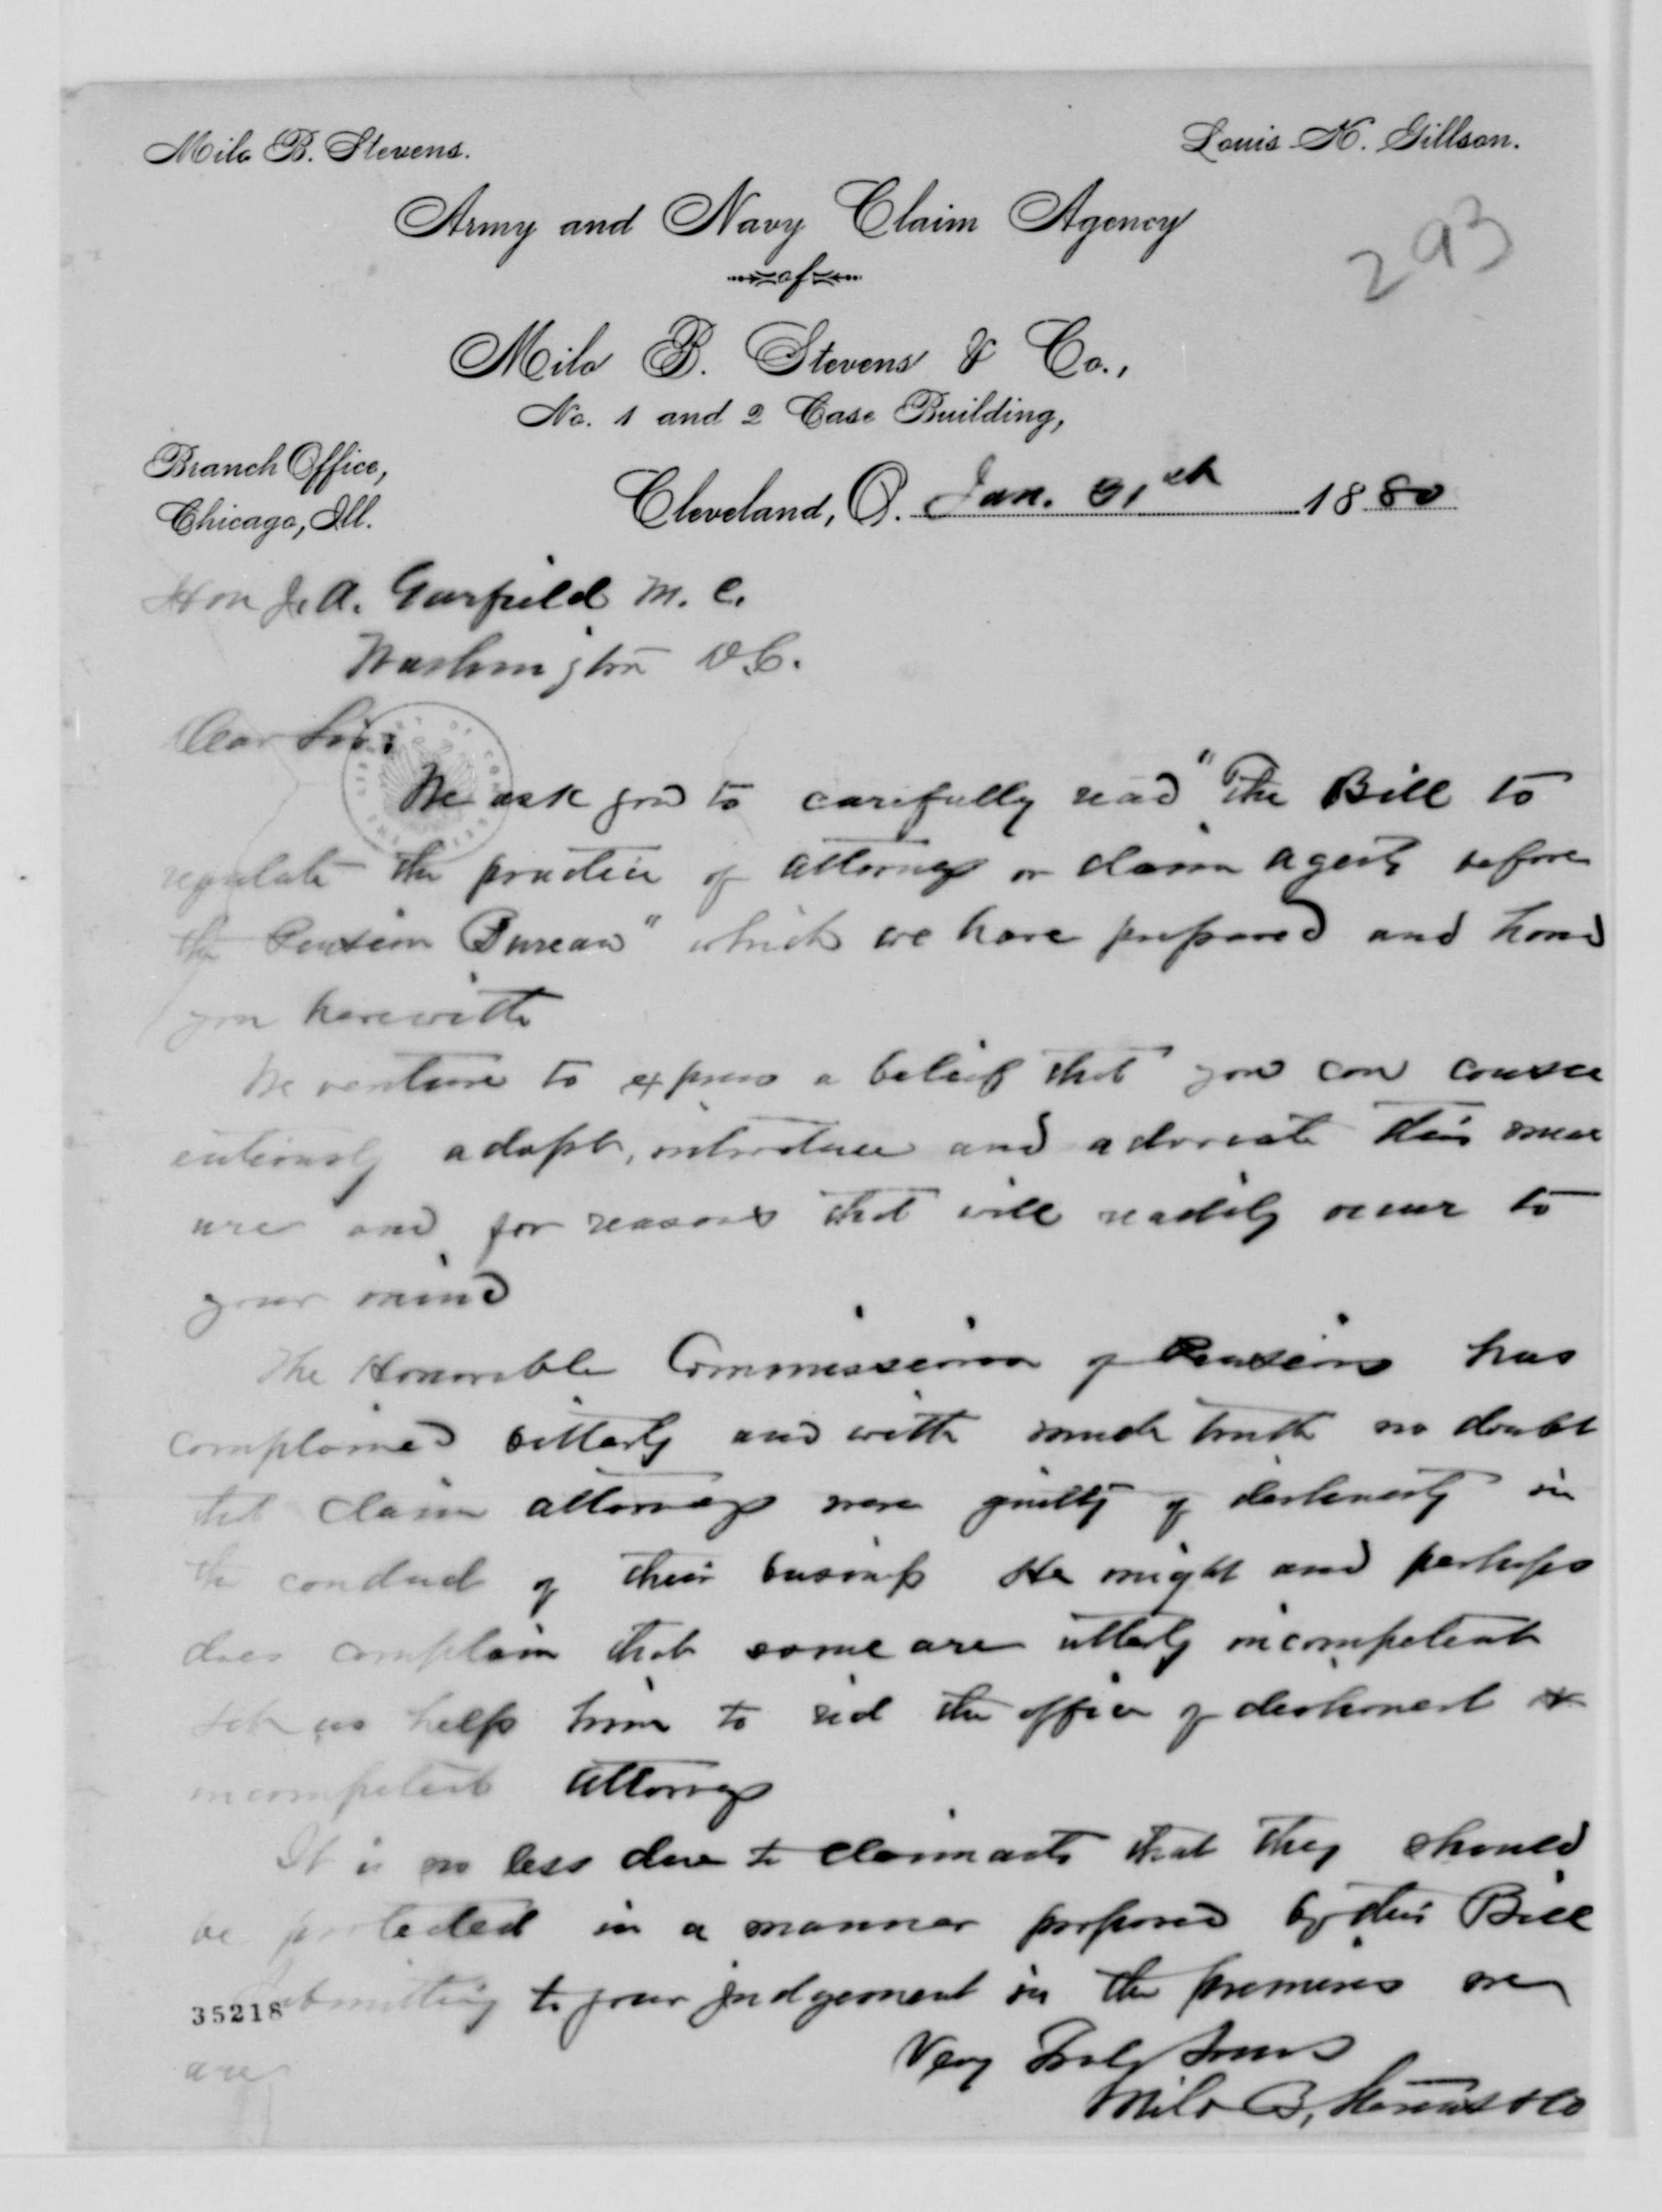 Milo B. Stevens.
Louis K. Gillson.
Army and Navy Claim Agency
of
293
Milo B. Stevens & Co.,
No. 1 and 2 Case Building,
Branch Office,
Chicago, Ill.
Cleveland, O. Jan. 31st 1880
Hon J. A. Garfield M. C.
Washington D.C.
Dear Sir:
We ask you to carefully read "The Bill to
regulate the practice of attorneys or claim agents before
the Pension Bureau" which we have prepared and hand
you herewith
We venture to express a belief that you can consci
entiously adopt, introduce and advocate this meas
ure and for reasons that will readily occur to
your mind
The Honorable Commissioner of Pensions has
complained bitterly and with much truth no doubt
that claim attorneys were guilty of dishonesty in
the conduct of their business He might and perhaps
does complain that some are utterly incompetent
Let us help him to rid the office of dishonest &
incompetent attorneys
It is no less due to claimants that they should
be protected in a manner proposed by this Bill
Submitting to your judgement in the premises we
35218
are
Very Truly Yours
Milo B. Stevens & Co